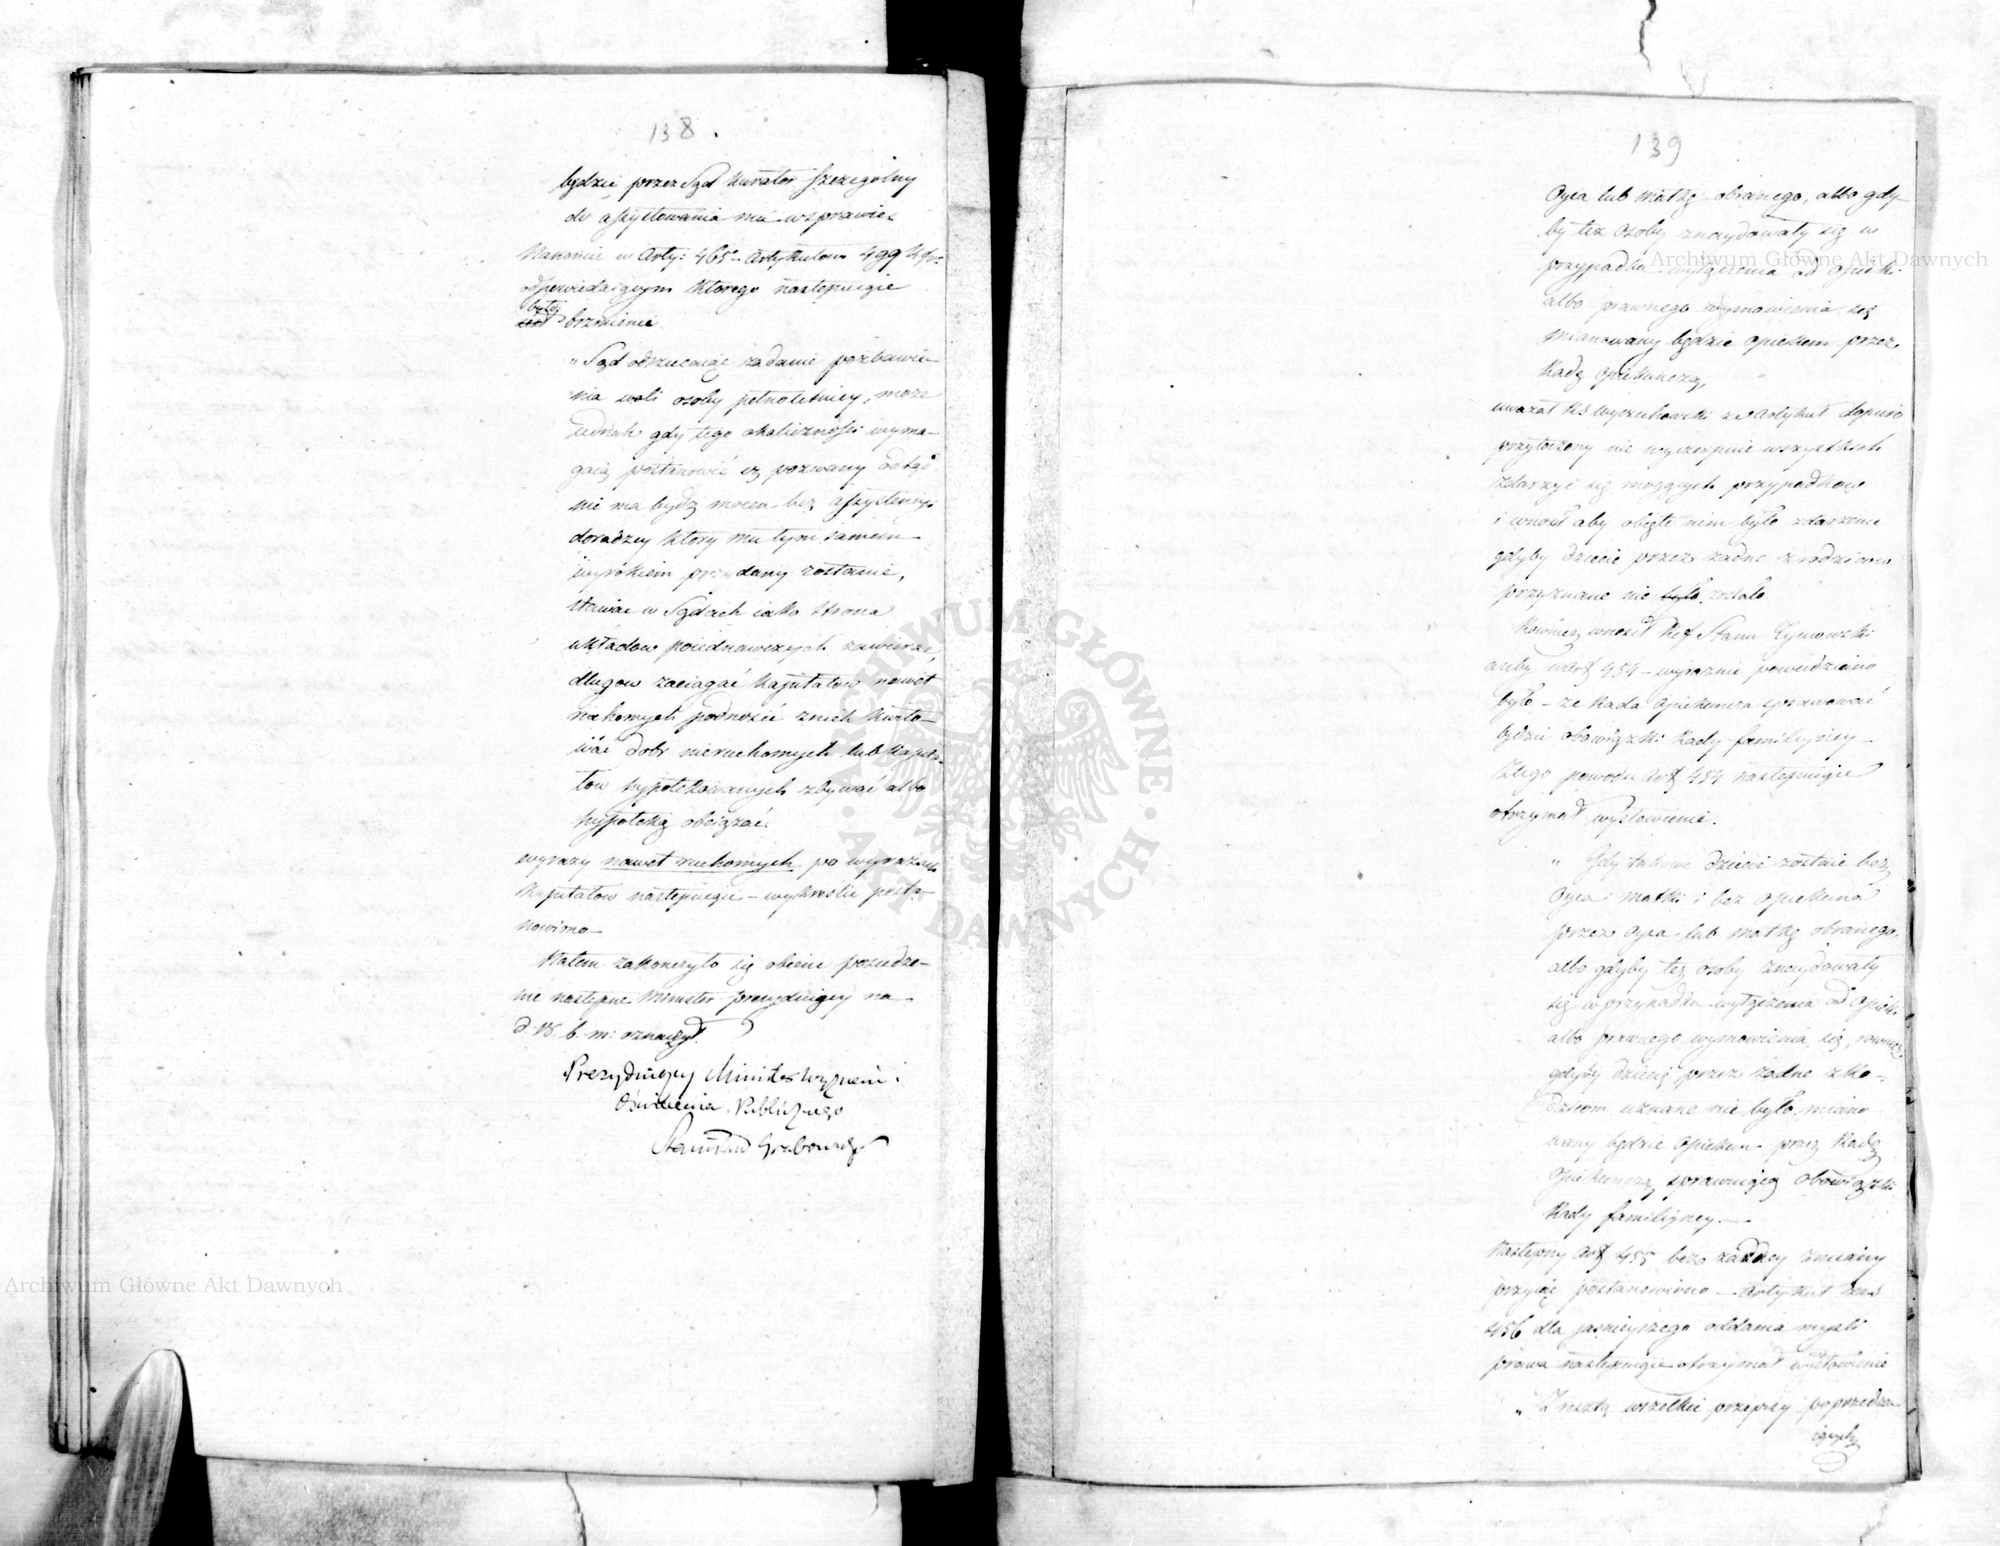 138.
będzie przez Sąd Kurator szczególny
do assystowania mu w sprawie.
Nakoniec w Arty: 465 – Artykułowi 499
odpowiedaiącym którego następuiące
było brzmienie
„Sąd odrzucaiąc żądanie pozbawie–
nia woli osoby pełnoletniey, może
iednak gdy tego okoliczności wyma–
gaią postanowić iż pozwany odtąd
nie ma bydź mocen bez assystencyi
doradzcy który mu tymże samém
wyrokiem przydany zostanie,
stawać w Sądach iako strona
układow poiednawczych zawierać,
długow zaciągać kapitałow nawet
ruchomych podnosić z nich kwito–
wać dobr nieruchomych lub kapita–
łow hypotekowanych zbywać albo
hypoteką obciążać.
wyrazy nawet ruchomych po wyrazach
kapitałow następuiące – wykreślić posta–
nowiono –
Natem zakończyło się obecne posiedze–
nie następne Minister prezyduiący na
d. 18. b. m: oznaczył.
Prezyduiący Minister Wyznań i
Oświecenia Publicznego
Stanisław Grabowski
139
Oyca lub Matkę obranego, albo gdy–
by też osoby znaydowały się w
przypadku wyłączenia od opieki
albo prawnego wymowienia się
mianowany będzie opiekun przez
Radę Opiekunczą,
uważał RS Wyczechowski że Artykuł dopiero
przytoczony nie wyczerpuie wszystkich
zdarzyć się mogących przypadkow
i wnosił aby obięte nim było zdarzenie
gdyby dziecie przez żadne z rodzicow
przyznane nie było zostało
Rownież wnosił Ref Stanu Tymowski
ażeby w Art 454 – wyraźnie powiedziano
było – że Rada Opiekuncza sprawować
będzie obowiązki Rady familiyney –
Z tego powodu Art 454 następuiące
otrzymał wysłowienie.
„ Gdy takowe dziecie zostaie bez
Oyca i Matki i bez Opiekuna
przez Oyca lub Matkę obranego
albo gdyby też osoby znaydowały
się w przypadku wyłączenia od Opieki
albo prawnego wymowienia się, rownież
gdyby dziecię przez żadne z Ro–
dzicow uznane nie było miano
wany będzie Opiekun przez Radę
Opiekunczą sprawuiącą obowiązki
Rady familiyney. –
Następny Art 455 bez żadney zmiany
przyiąć postanowiono – Artykuł zaś
456 dla jaśnieyszego oddania myśli
prawa następuiące otrzymał wysłowienie
„Zresztą wszelkie przepisy poprzedza–
iących
Archiwum Główne Akt Dawnych
Archiwum Główne Akt Dawnych
ARCHIWUM GŁÓWNE
AKT DAWNYCH